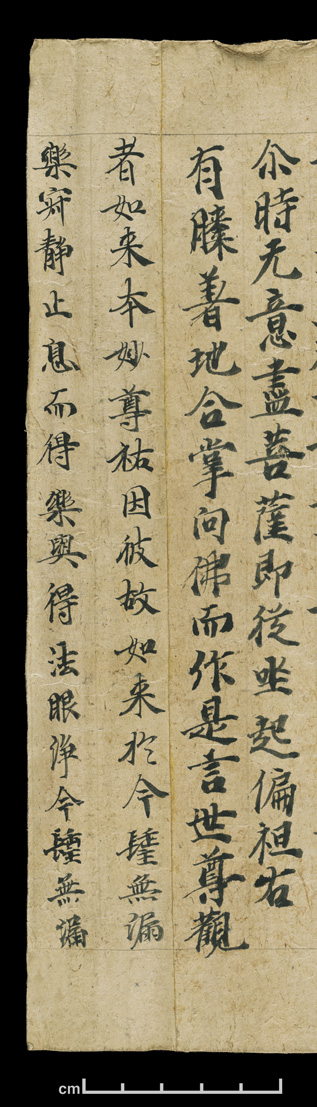 尒時无意盡菩薩即從坐起偏袒右
有膝著地合掌向佛而作是言世尊觀
者如来本妙尊祐因彼故如来於今無漏
樂寂静止息而得樂與得法眼淨今無漏